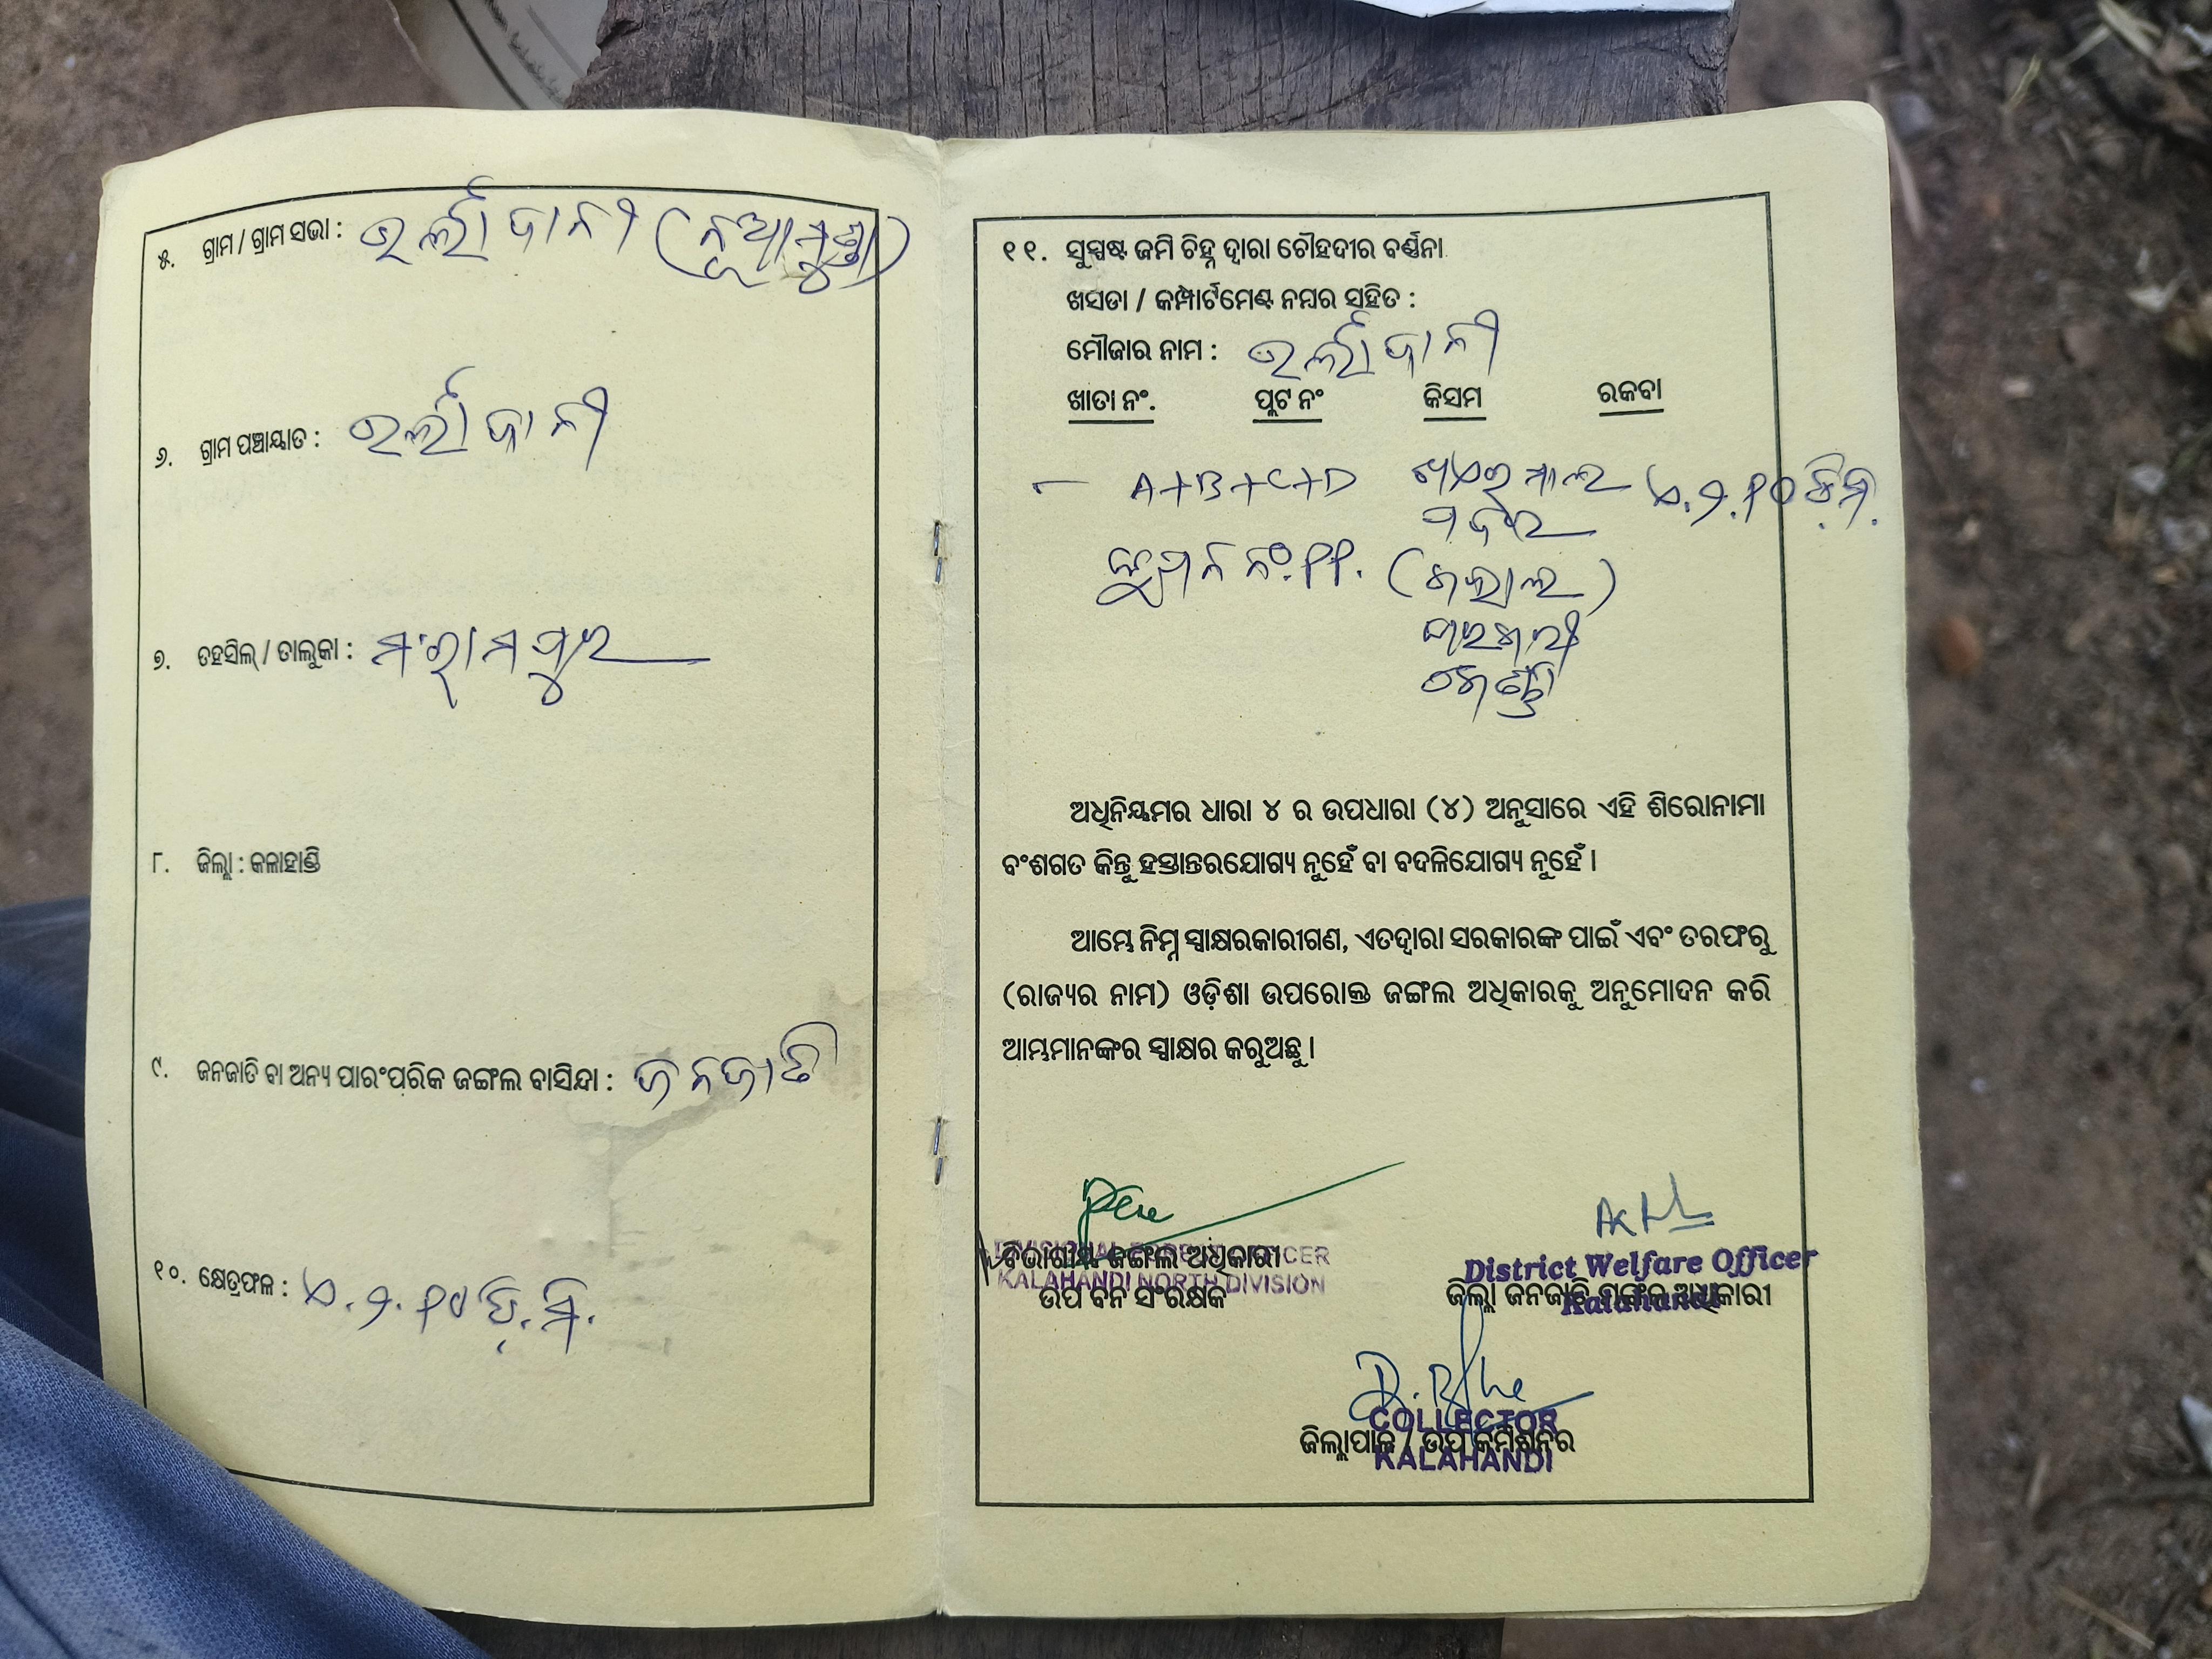 ୫. ଗ୍ରାମ / ଗ୍ରାମ ସଭା : ଉର୍ଲାଦାନୀ (ନୂଆମୁଣ୍ଡା)
୬. ଗ୍ରାମ ପଞ୍ଚାୟାତ : ଉର୍ଲାଦାନୀ
୭. ତହସିଲ୍ / ତାଲୁକା : ମ.ରାମପୁର
୮. ଜିଲ୍ଲା : କଳାହାଣ୍ଡି
୯. ଜନଜାତି ବା ଅନ୍ୟ ପାରଂପରିକ ଜଙ୍ଗଲ ବାସିନ୍ଦା : ଜନଜାତି
୧୦. କ୍ଷେତ୍ରଫଳ : ଏ.୨.୧୦ ଡି.ମି.
୧୧. ସୁସ୍ପଷ୍ଟ ଜମି ଚିହ୍ନ ଦ୍ୱାରା ଚୌହଦୀର ବର୍ଣ୍ଣନା
ଖସଡା / କମ୍ପାର୍ଟମେଣ୍ଟ ନମ୍ବର ସହିତ :
ମୌଜାର ନାମ : ଉର୍ଲାଦାନୀ
ଖାତା ନଂ. ପ୍ଲଟ ନଂ କିସମ ରକବା
A+B+C+D ଏ.୨.୧୦ ଡି.ମି.
ନଂ.୧୧. (ଜଙ୍ଗଲ)
ଅଧିନିୟମର ଧାରା ୪ ର ଉପଧାରା (୪) ଅନୁସାରେ ଏହି ଶିରୋନାମା
ବଂଶଗତ କିନ୍ତୁ ହସ୍ତାନ୍ତରଯୋଗ୍ୟ ନୁହେଁ ବା ବଦଳିଯୋଗ୍ୟ ନୁହେଁ ।
ଆମ୍ଭେ ନିମ୍ନ ସ୍ୱାକ୍ଷରକାରୀଗଣ, ଏତଦ୍ୱାରା ସରକାରଙ୍କ ପାଇଁ ଏବଂ ତରଫରୁ
(ରାଜ୍ୟର ନାମ) ଓଡ଼ିଶା ଉପରୋକ୍ତ ଜଙ୍ଗଲ ଅଧିକାରକୁ ଅନୁମୋଦନ କରି
ଆମ୍ଭମାନଙ୍କର ସ୍ୱାକ୍ଷର କରୁଅଛୁ ।
DIVISIONAL FOREST OFFICER
ବିଭାଗୀୟ ଜଙ୍ଗଲ ଅଧିକାରୀ
KALAHANDI NORTH DIVISION
ଉପ ବନ ସଂରକ୍ଷକ
District Welfare Officer
ଜିଲ୍ଲା ଜନଜାତି ମଙ୍ଗଳ ଅଧିକାରୀ
Kalahandi
COLLECTOR
ଜିଲ୍ଲାପାଳ / ଉପ କମିଶନର
KALAHANDI